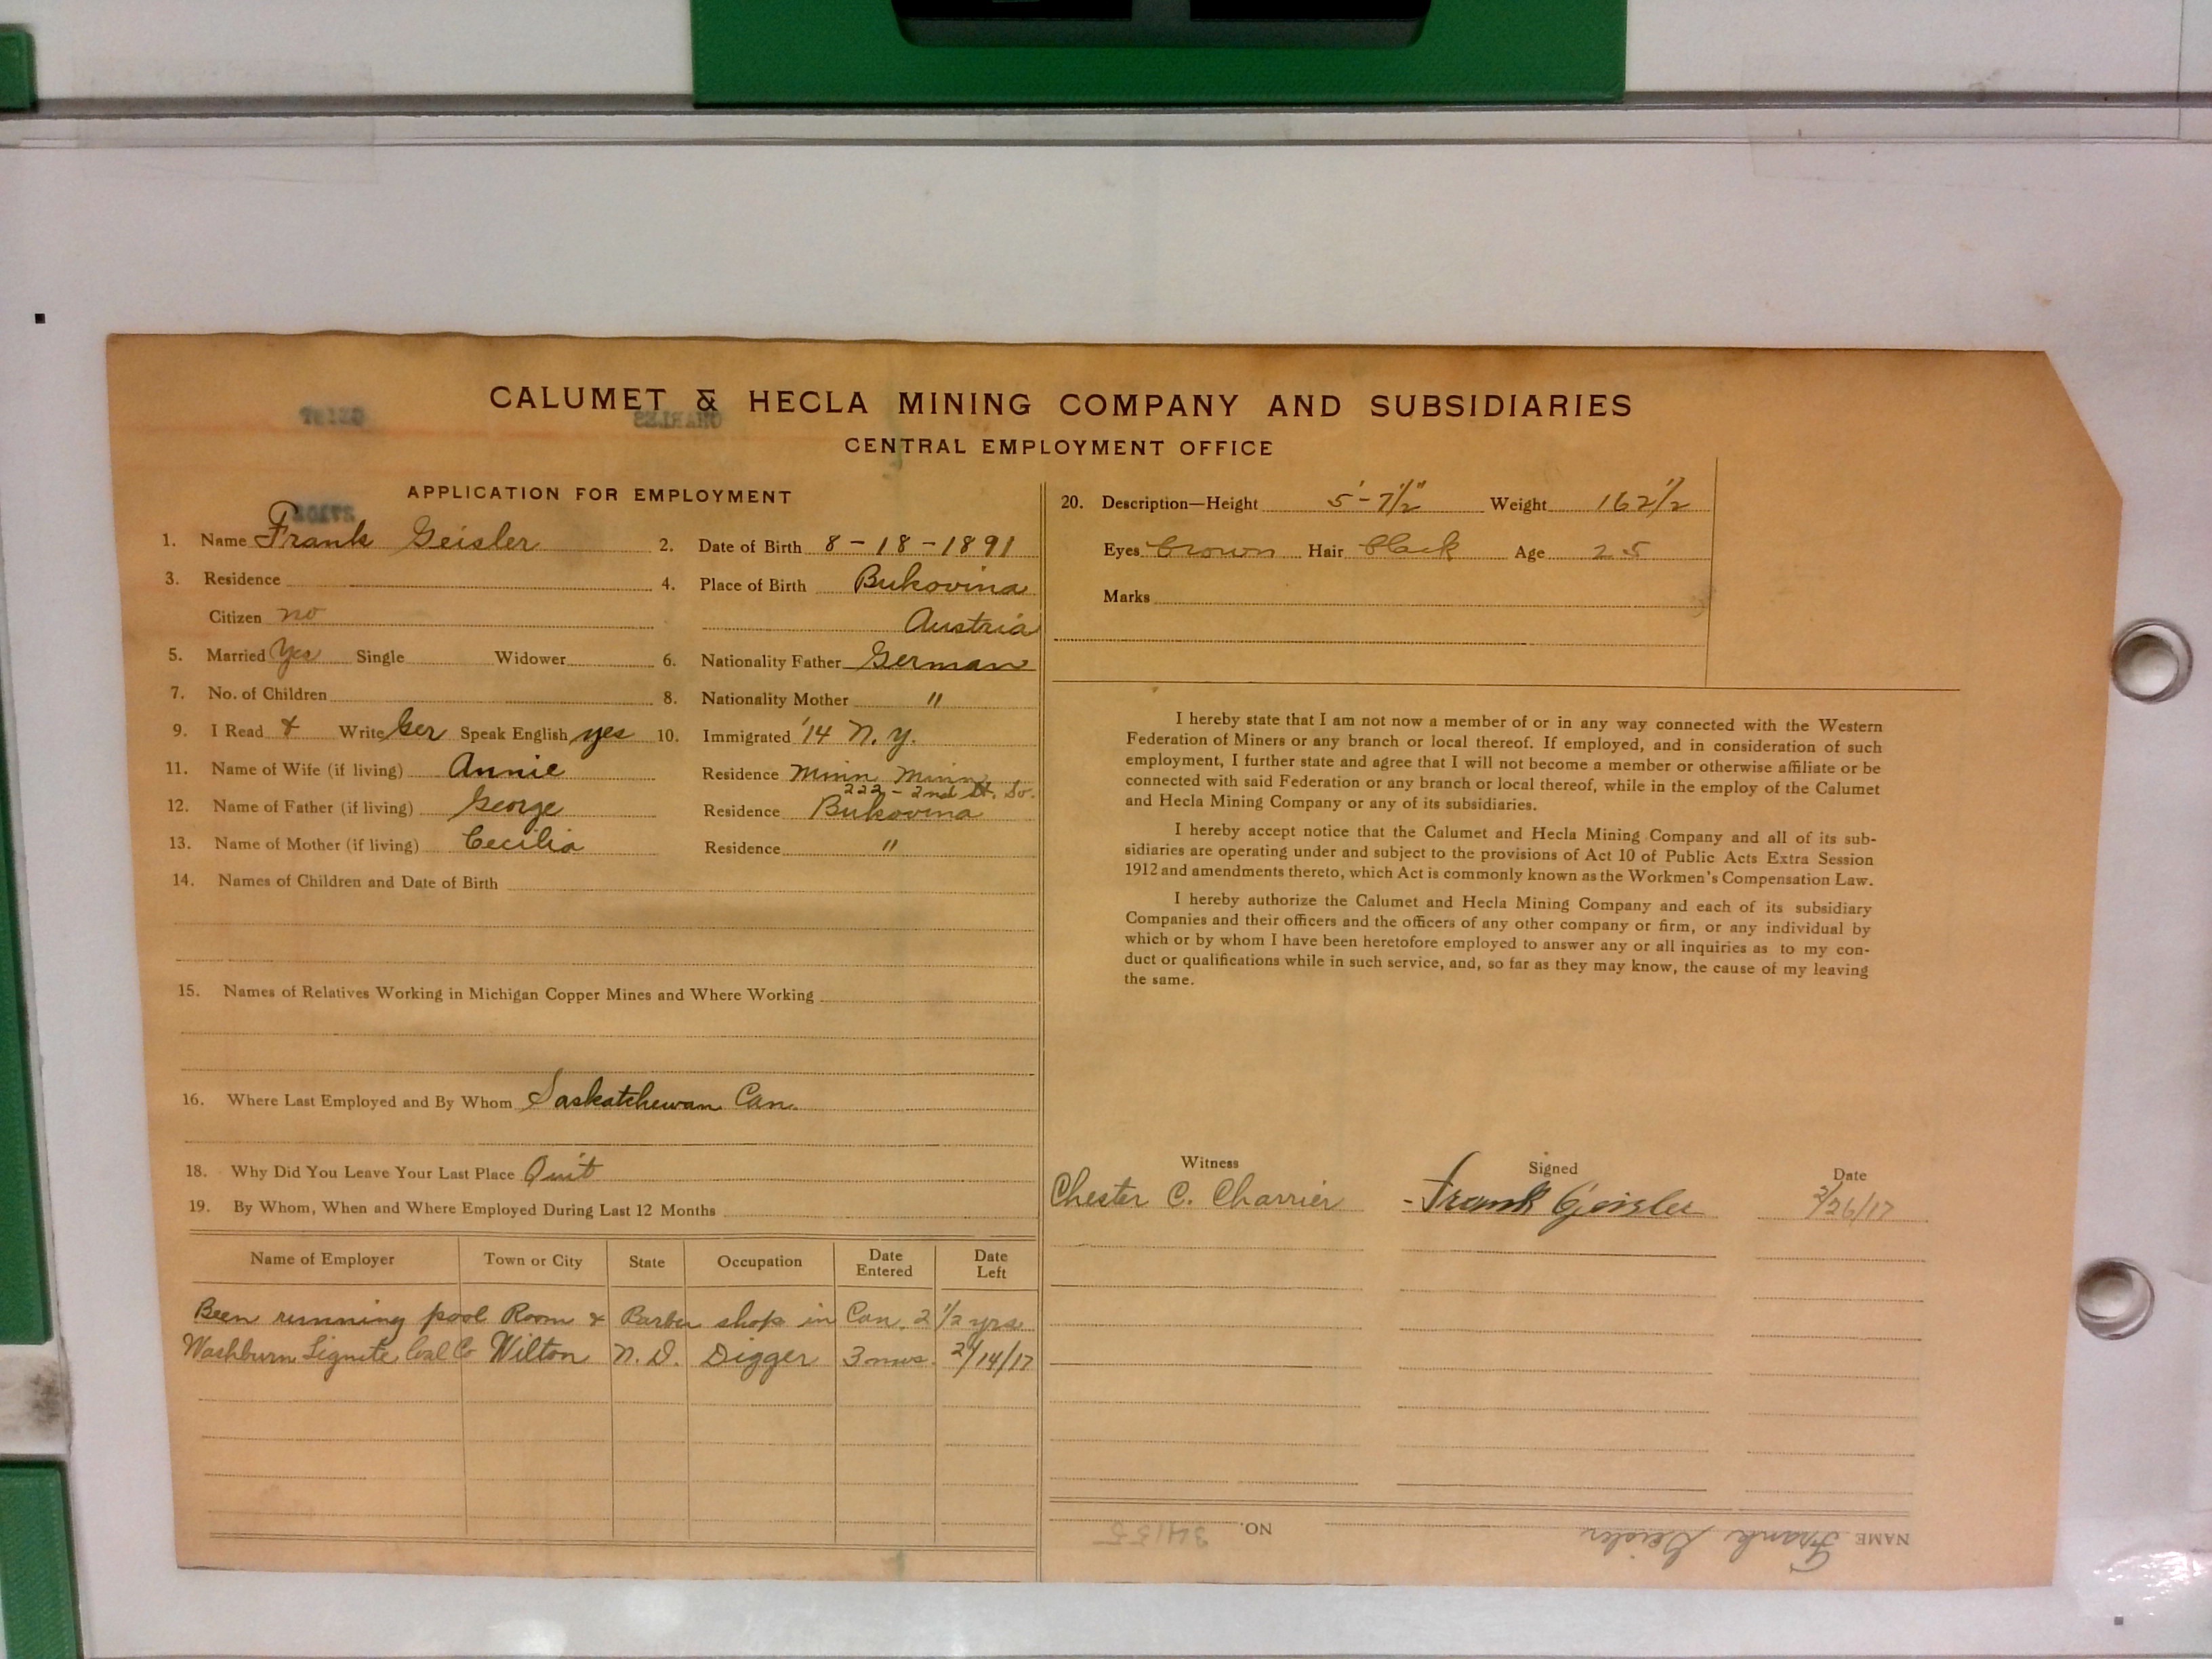 CALUMET & HECLA MINING COMPANY AND SUBSIDIARIES
CENTRAL EMPLOYMENT OFFICE
APPLICATION FOR EMPLOYMENT
1. Name Frank Geisler 2. Date of Birth 8-18-1891
3. Residence 4. Place of Birth Bukovina
Citizen no Austria
5. Married Yes Single Widower 6. Nationality Father German
7. No. of Children 8. Nationality Mother "
9. I Read & Write Ger Speak English yes 10. Immigrated '14 N.Y.
11. Name of Wife (if living) Annie Residence Minn Minn
222 - 2nd St. So.
12. Name of Father (if living) George Residence Bukovina
13. Name of Mother (if living) Cecilia Residence "
14. Names of Children and Date of Birth
15. Names of Relatives Working in Michigan Copper Mines and Where Working
16. Where Last Employed and By Whom Saskatchewan Can.
18. Why Did You Leave Your Last Place Quit
19. By Whom, When and Where Employed During Last 12 Months
Name of Employer Town or City State Occupation Date Entered Date Left
Been running pool Room & Barber shop in Can. 2 1/2 yrs
Washburn Lignite Coal Co Wilton N.D. Digger 3 mos. 2/14/17
20. Description—Height 5'-7 1/2" Weight 162 1/2
Eyes brown Hair Black Age 25
Marks
I hereby state that I am not now a member of or in any way connected with the Western
Federation of Miners or any branch or local thereof. If employed, and in consideration of such
employment, I further state and agree that I will not become a member or otherwise affiliate or be
connected with said Federation or any branch or local thereof, while in the employ of the Calumet
and Hecla Mining Company or any of its subsidiaries.
I hereby accept notice that the Calumet and Hecla Mining Company and all of its sub-
sidiaries are operating under and subject to the provisions of Act 10 of Public Acts Extra Session
1912 and amendments thereto, which Act is commonly known as the Workmen's Compensation Law.
I hereby authorize the Calumet and Hecla Mining Company and each of its subsidiary
Companies and their officers and the officers of any other company or firm, or any individual by
which or by whom I have been heretofore employed to answer any or all inquiries as to my con-
duct or qualifications while in such service, and, so far as they may know, the cause of my leaving
the same.
Witness Signed Date
Chester C. Charrier Frank Geisler 2/26/17
NAME Frank Geisler NO. 34135